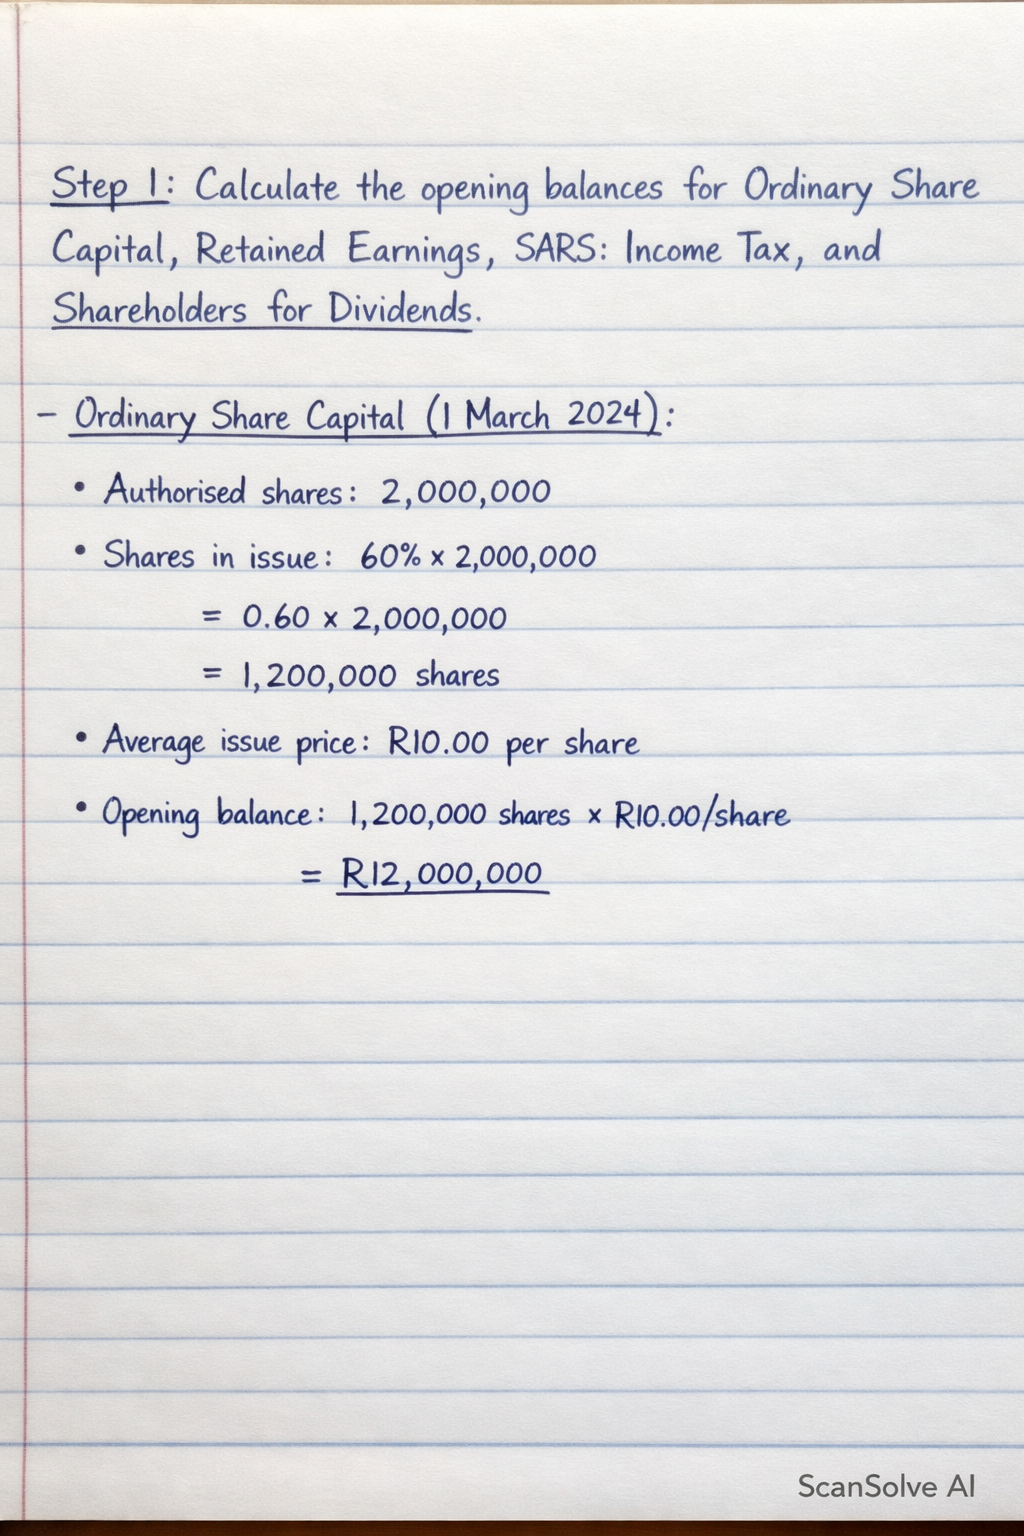 Step 1: Calculate the opening balances for Ordinary Share
Capital, Retained Earnings, SARS: Income Tax, and
Shareholders for Dividends.
– Ordinary Share Capital (1 March 2024):
• Authorised shares: 2,000,000
• Shares in issue: 60% × 2,000,000
= 0.60 × 2,000,000
= 1,200,000 shares
• Average issue price: R10.00 per share
• Opening balance: 1,200,000 shares × R10.00/share
= R12,000,000
ScanSolve AI